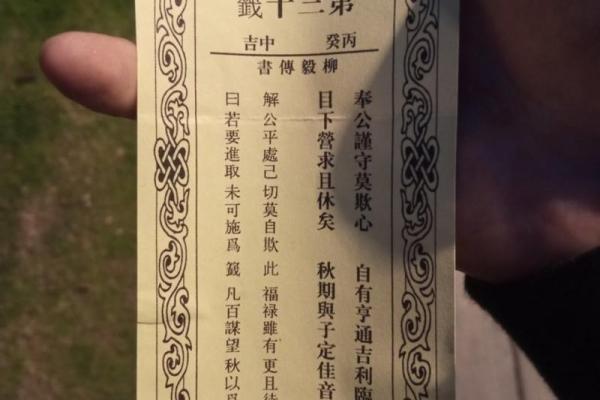 第三十籤
丙癸 中吉
柳毅傳書
奉公謹守莫欺心 自有亨通吉利臨
目下營求且休矣 秋期與子定佳音
解 公平處己 切莫自欺 此 福祿雖有 更且待
曰 若要進取 未可施爲 籤 凡百謀望 秋以